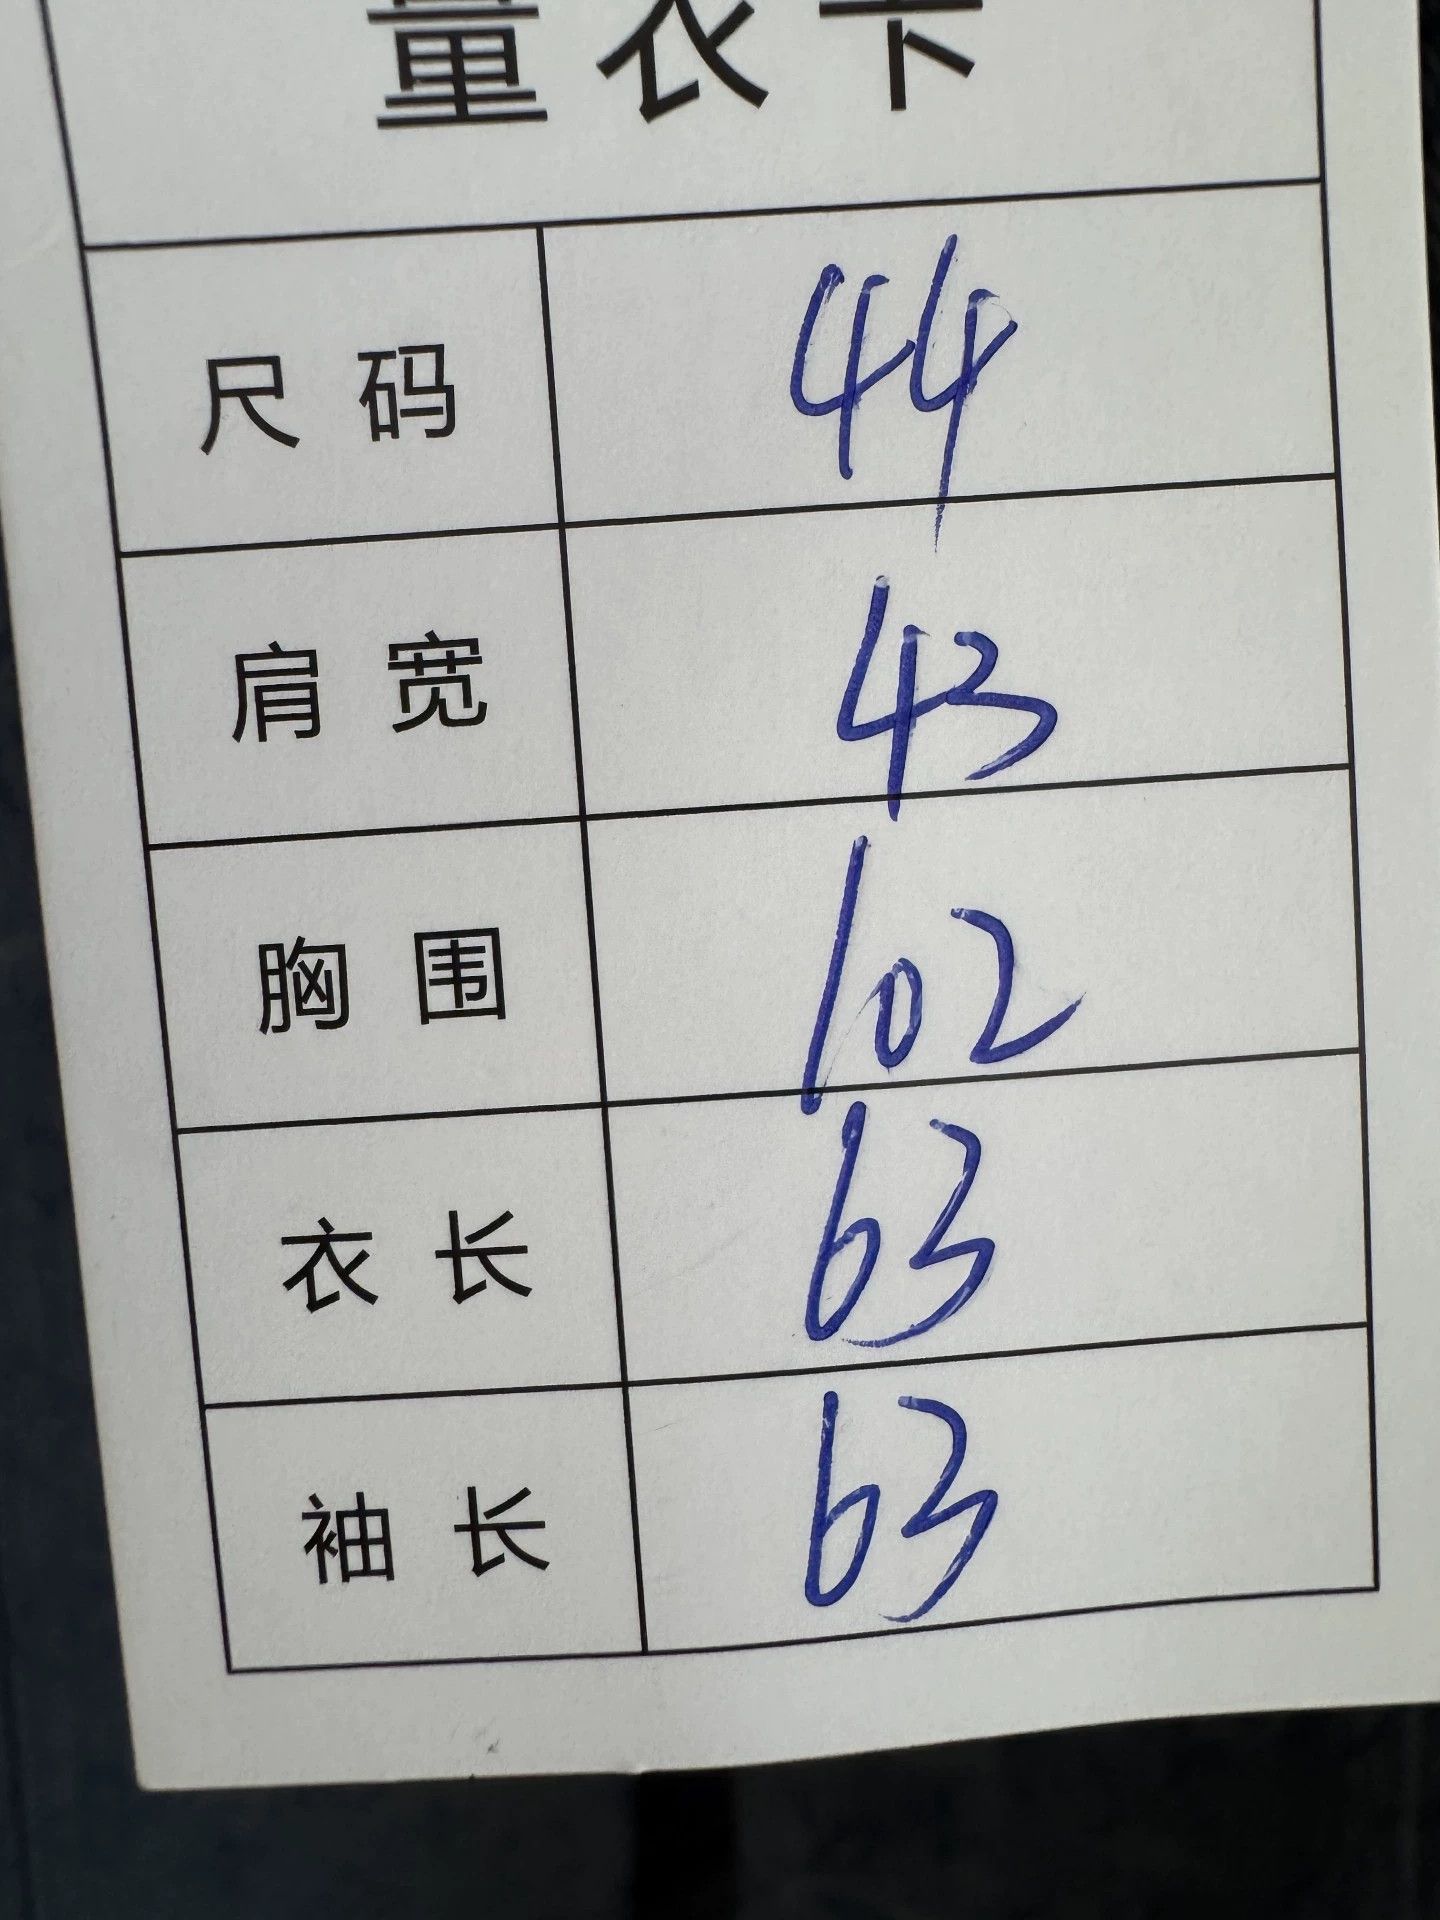 量衣卡
尺码 44
肩宽 43
胸围 102
衣长 63
袖长 63